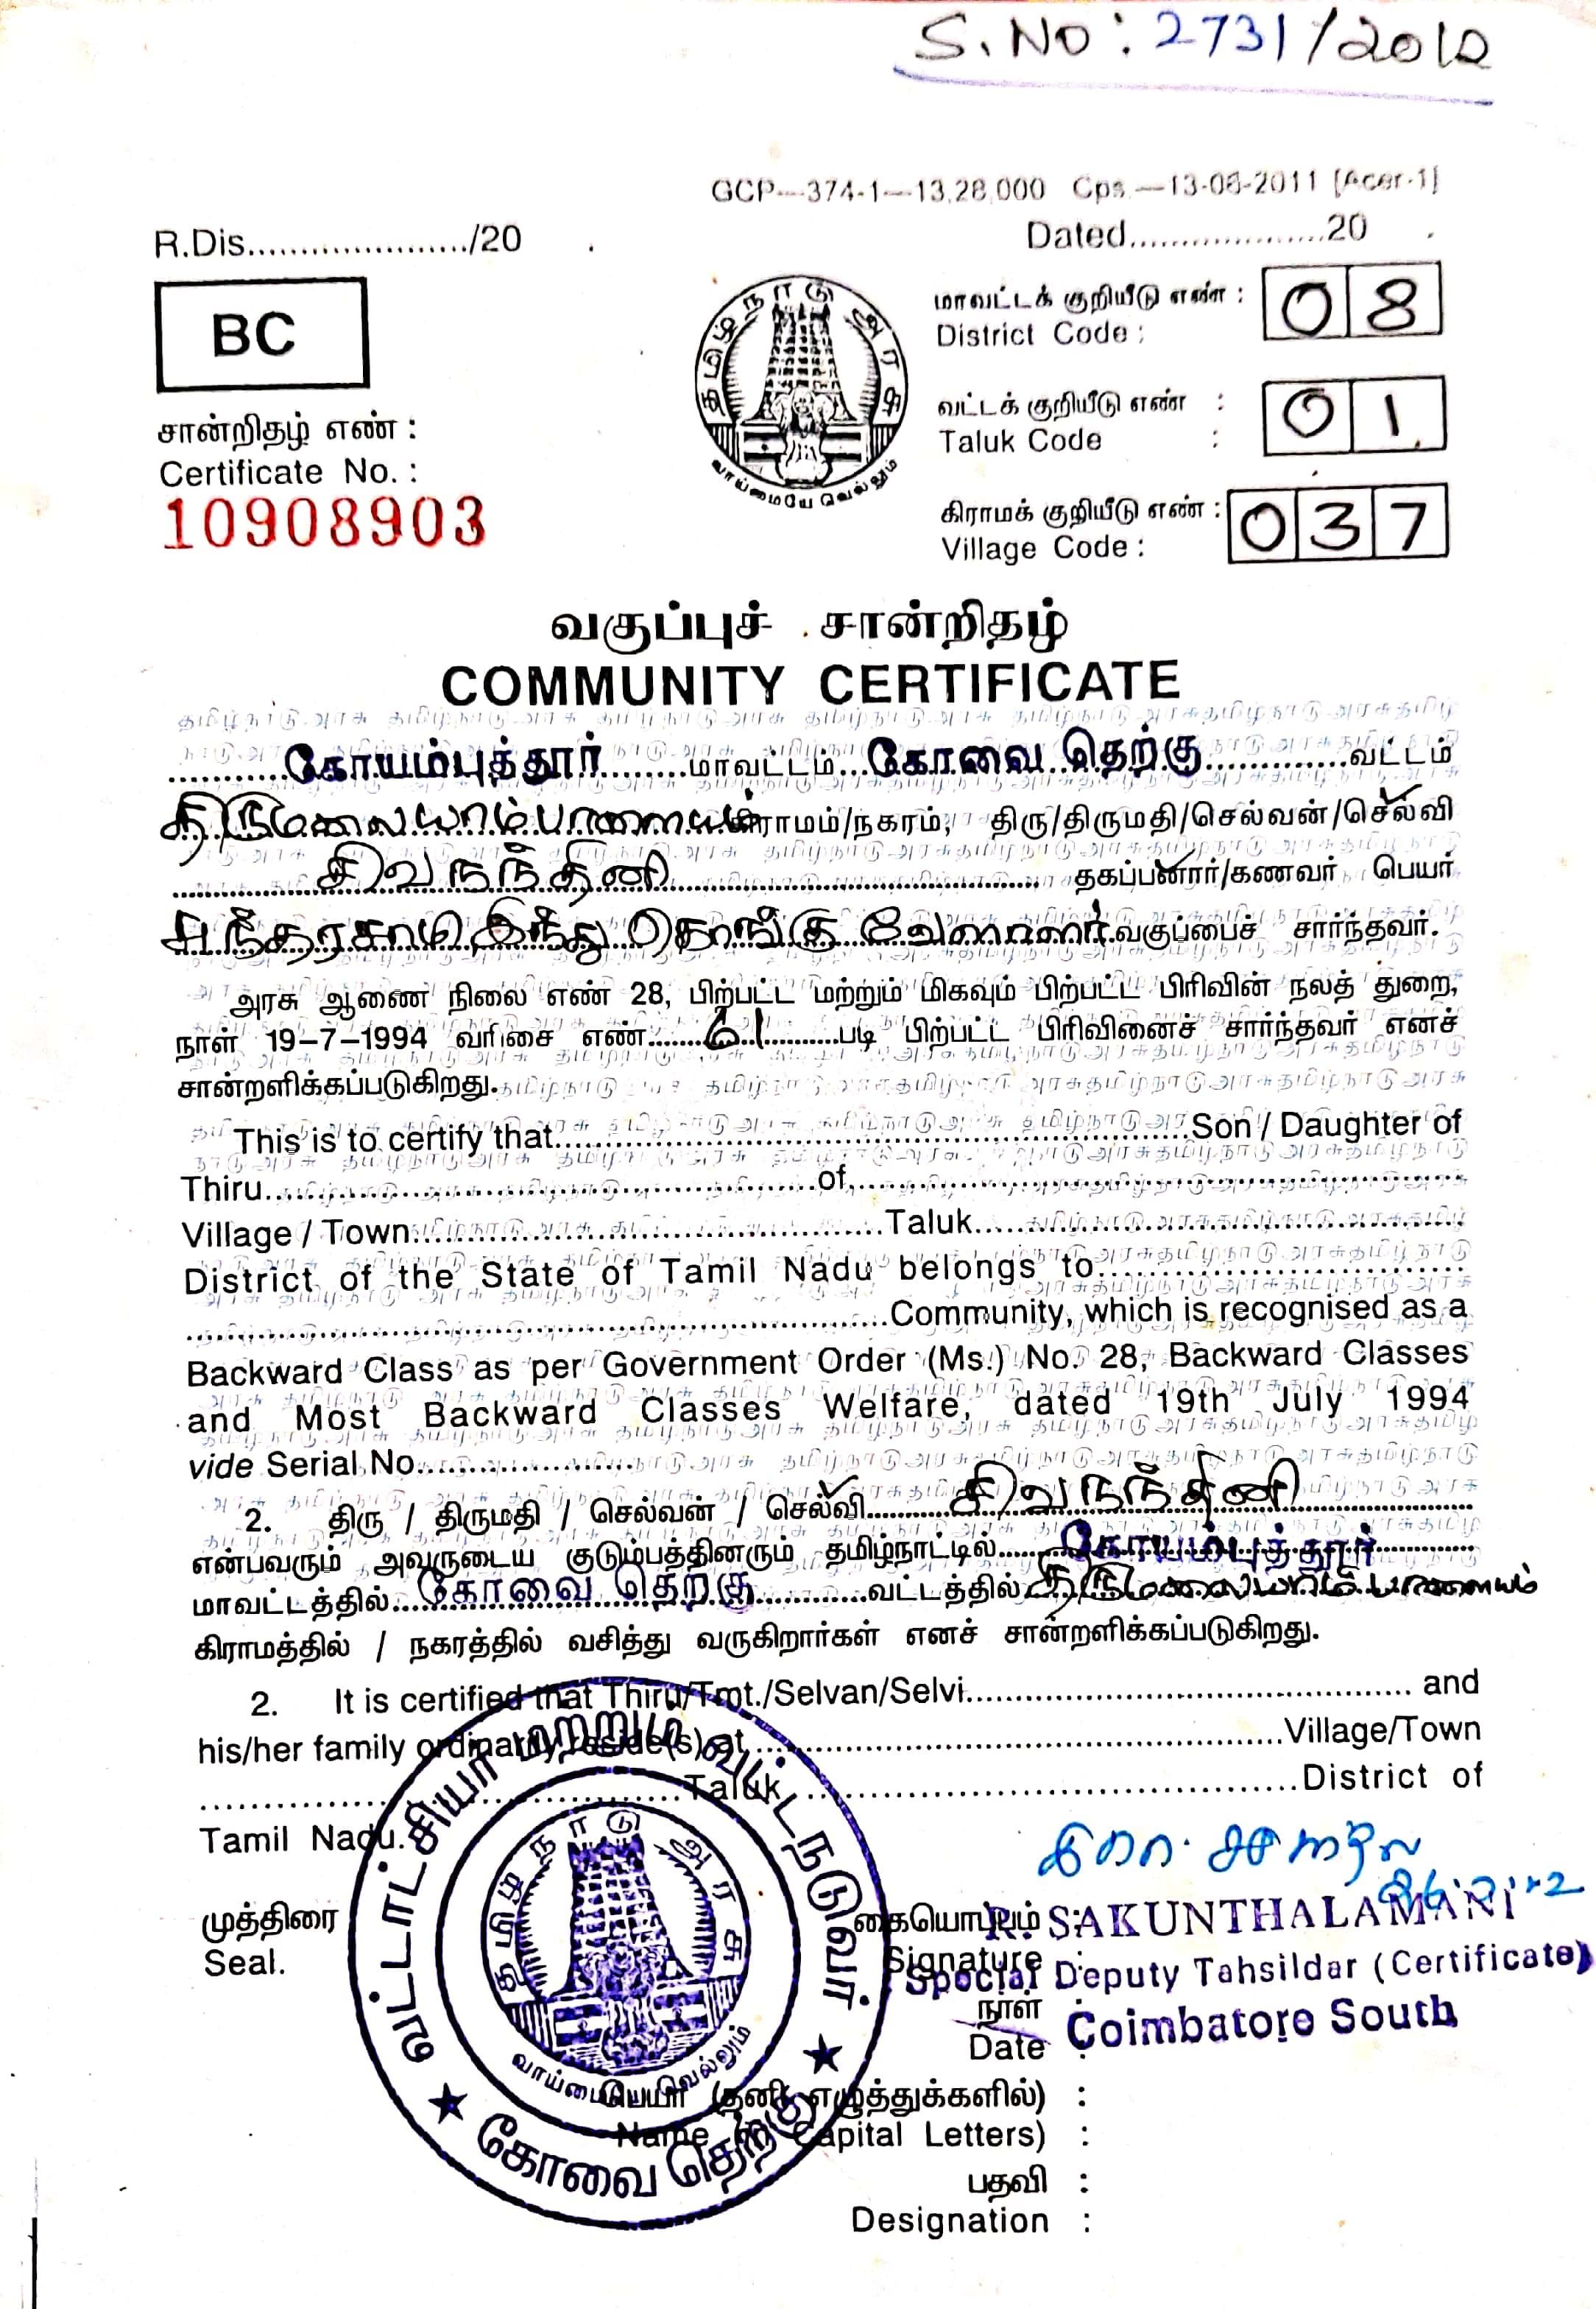 S. No: 2731/2012
GCP—374-1—13,28,000 Cps.—13-06-2011 [Acer-1]
R.Dis...................../20
Dated...................20
BC
தமிழ்நாடு அரசு
வாய்மையே வெல்லும்
மாவட்டக் குறியீடு எண் : 08
District Code :
சான்றிதழ் எண் :
Certificate No. :
10908903
வட்டக் குறியீடு எண் : 01
Taluk Code :
கிராமக் குறியீடு எண் : 037
Village Code :
வகுப்புச் சான்றிதழ்
COMMUNITY CERTIFICATE
கோயம்புத்தூர் மாவட்டம் கோவை தெற்கு வட்டம்
திருமலையாம்பாளையம் கிராமம்/நகரம், திரு/திருமதி/செல்வன்/செல்வி
சிவநந்தினி தகப்பனார்/கணவர் பெயர்
இந்து கொங்கு வேளாளர் வகுப்பைச் சார்ந்தவர்.
அரசு ஆணை நிலை எண் 28, பிற்பட்ட மற்றும் மிகவும் பிற்பட்ட பிரிவின் நலத் துறை,
நாள் 19–7–1994 வரிசை எண் 61 படி பிற்பட்ட பிரிவினைச் சார்ந்தவர் எனச்
சான்றளிக்கப்படுகிறது.
This is to certify that..........Son / Daughter of
Thiru..........of..........
Village / Town..........Taluk..........
District of the State of Tamil Nadu belongs to..........
..........Community, which is recognised as a
Backward Class as per Government Order (Ms.) No. 28, Backward Classes
and Most Backward Classes Welfare, dated 19th July 1994
vide Serial No..........
2. திரு / திருமதி / செல்வன் / செல்வி சிவநந்தினி
என்பவரும் அவருடைய குடும்பத்தினரும் தமிழ்நாட்டில் கோயம்புத்தூர்
மாவட்டத்தில் கோவை தெற்கு வட்டத்தில் திருமலையாம்பாளையம்
கிராமத்தில் / நகரத்தில் வசித்து வருகிறார்கள் எனச் சான்றளிக்கப்படுகிறது.
2. It is certified that Thiru/Tmt./Selvan/Selvi.......... and
his/her family ordinarily reside(s) at..........Village/Town
..........Taluk..........District of
Tamil Nadu.
முத்திரை
Seal.
வட்டாட்சியர் மற்றும் வட்டநடுவர்
கோவை தெற்கு
தமிழ்நாடு அரசு
வாய்மையே வெல்லும்
கையொப்பம் :
R. SAKUNTHALAMANI
Signature :
Special Deputy Tahsildar (Certificate)
நாள் :
Date :
Coimbatore South
பெயர் (தனி எழுத்துக்களில்) :
Name (in Capital Letters) :
பதவி :
Designation :